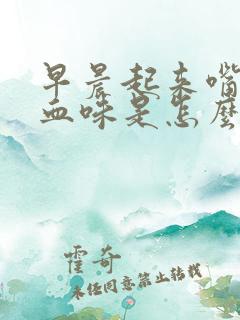 早晨起来嘴
血味是怎麽
霍奇
未经同意禁止转载